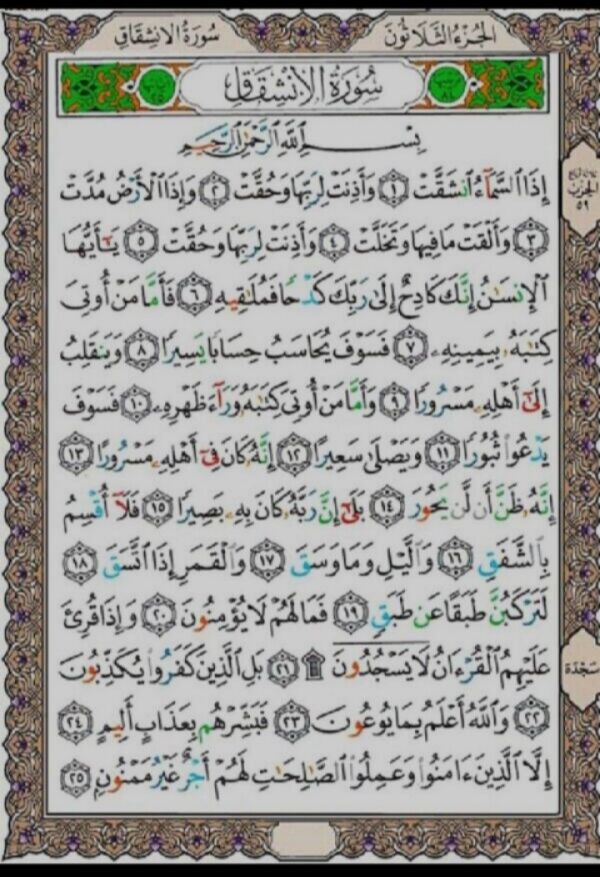 الجزء الثلاثون
سورة الانشقاق
سُورَةُ الانْشِقَاقِ
بِسْمِ ٱللَّهِ ٱلرَّحْمَٰنِ ٱلرَّحِيمِ
إِذَا ٱلسَّمَآءُ ٱنشَقَّتْ ١ وَأَذِنَتْ لِرَبِّهَا وَحُقَّتْ ٢ وَإِذَا ٱلْأَرْضُ مُدَّتْ
٣ وَأَلْقَتْ مَا فِيهَا وَتَخَلَّتْ ٤ وَأَذِنَتْ لِرَبِّهَا وَحُقَّتْ ٥ يَٰٓأَيُّهَا
ٱلْإِنسَٰنُ إِنَّكَ كَادِحٌ إِلَىٰ رَبِّكَ كَدْحًا فَمُلَٰقِيهِ ٦ فَأَمَّا مَنْ أُوتِىَ
كِتَٰبَهُۥ بِيَمِينِهِۦ ٧ فَسَوْفَ يُحَاسَبُ حِسَابًا يَسِيرًا ٨ وَيَنقَلِبُ
إِلَىٰٓ أَهْلِهِۦ مَسْرُورًا ٩ وَأَمَّا مَنْ أُوتِىَ كِتَٰبَهُۥ وَرَآءَ ظَهْرِهِۦ ١٠ فَسَوْفَ
يَدْعُوا۟ ثُبُورًا ١١ وَيَصْلَىٰ سَعِيرًا ١٢ إِنَّهُۥ كَانَ فِىٓ أَهْلِهِۦ مَسْرُورًا ١٣
إِنَّهُۥ ظَنَّ أَن لَّن يَحُورَ ١٤ بَلَىٰٓ إِنَّ رَبَّهُۥ كَانَ بِهِۦ بَصِيرًا ١٥ فَلَآ أُقْسِمُ
بِٱلشَّفَقِ ١٦ وَٱلَّيْلِ وَمَا وَسَقَ ١٧ وَٱلْقَمَرِ إِذَا ٱتَّسَقَ ١٨
لَتَرْكَبُنَّ طَبَقًا عَن طَبَقٍ ١٩ فَمَا لَهُمْ لَا يُؤْمِنُونَ ٢٠ وَإِذَا قُرِئَ
عَلَيْهِمُ ٱلْقُرْءَانُ لَا يَسْجُدُونَ ۩ ٢١ بَلِ ٱلَّذِينَ كَفَرُوا۟ يُكَذِّبُونَ
٢٢ وَٱللَّهُ أَعْلَمُ بِمَا يُوعُونَ ٢٣ فَبَشِّرْهُم بِعَذَابٍ أَلِيمٍ ٢٤
إِلَّا ٱلَّذِينَ ءَامَنُوا۟ وَعَمِلُوا۟ ٱلصَّٰلِحَٰتِ لَهُمْ أَجْرٌ غَيْرُ مَمْنُونٍۭ ٢٥
الحزب
٥٩
سجدة